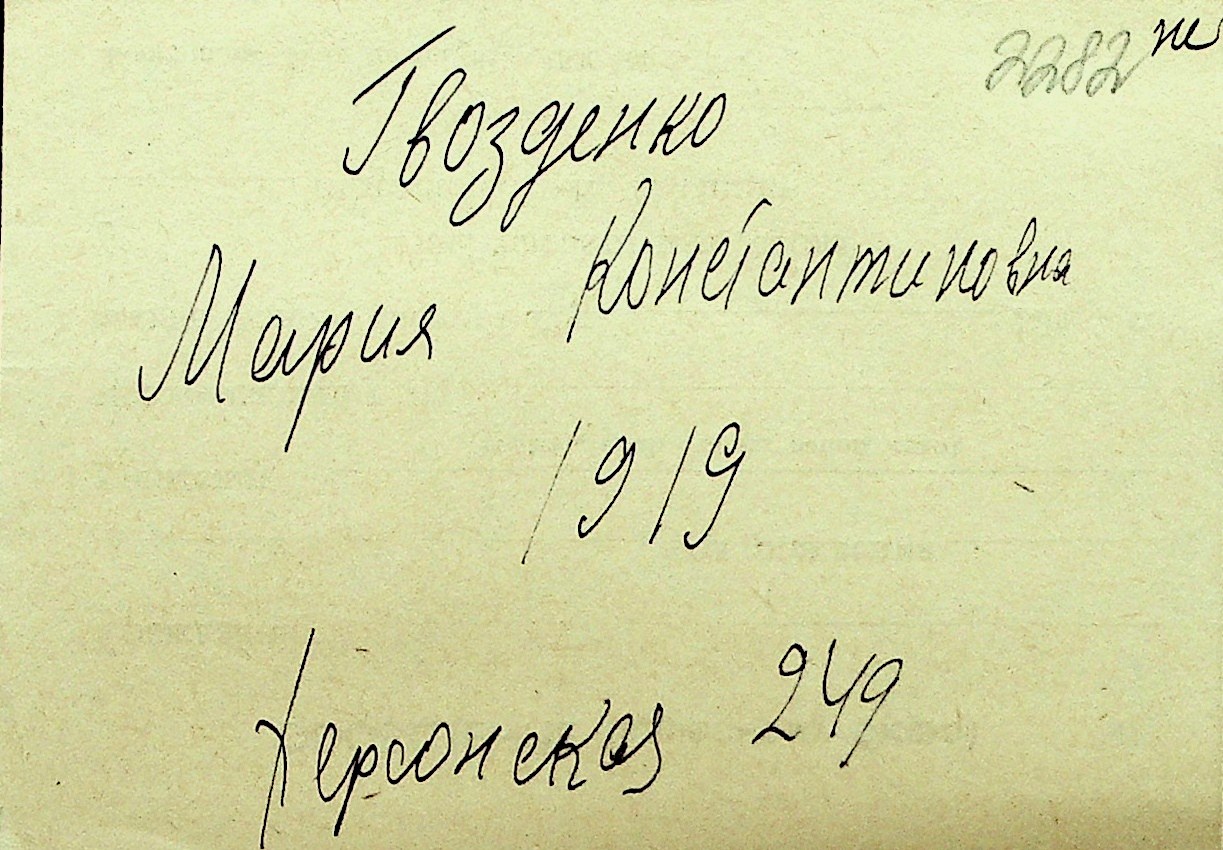 2282 ж
Гвозденко
Мария Константиновна
1919
Херсонская 249